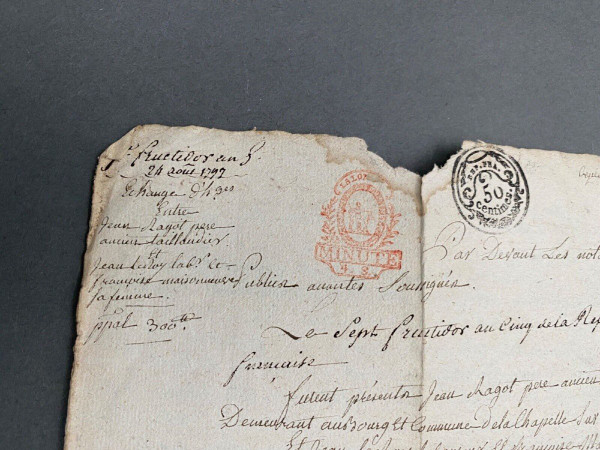 7 fructidor an 5
24 aout 1797
Echange d'h.ges
Entre
Jean Ragot pere
ancien taillandier
Et
Jean Leroy lab.r et
françoise maisonneuve
sa femme
ppal 300tt
MINUTE
REP. FRA.
50
centimes
Par Devant Les nota
Publics avantes Soussignés
Le Sept fructidor au Cinq de la Rep
française
furent présents Jean Ragot pere ancien
Demeurant au Bourg Et Commune de la Chapelle Sur
Et Jean